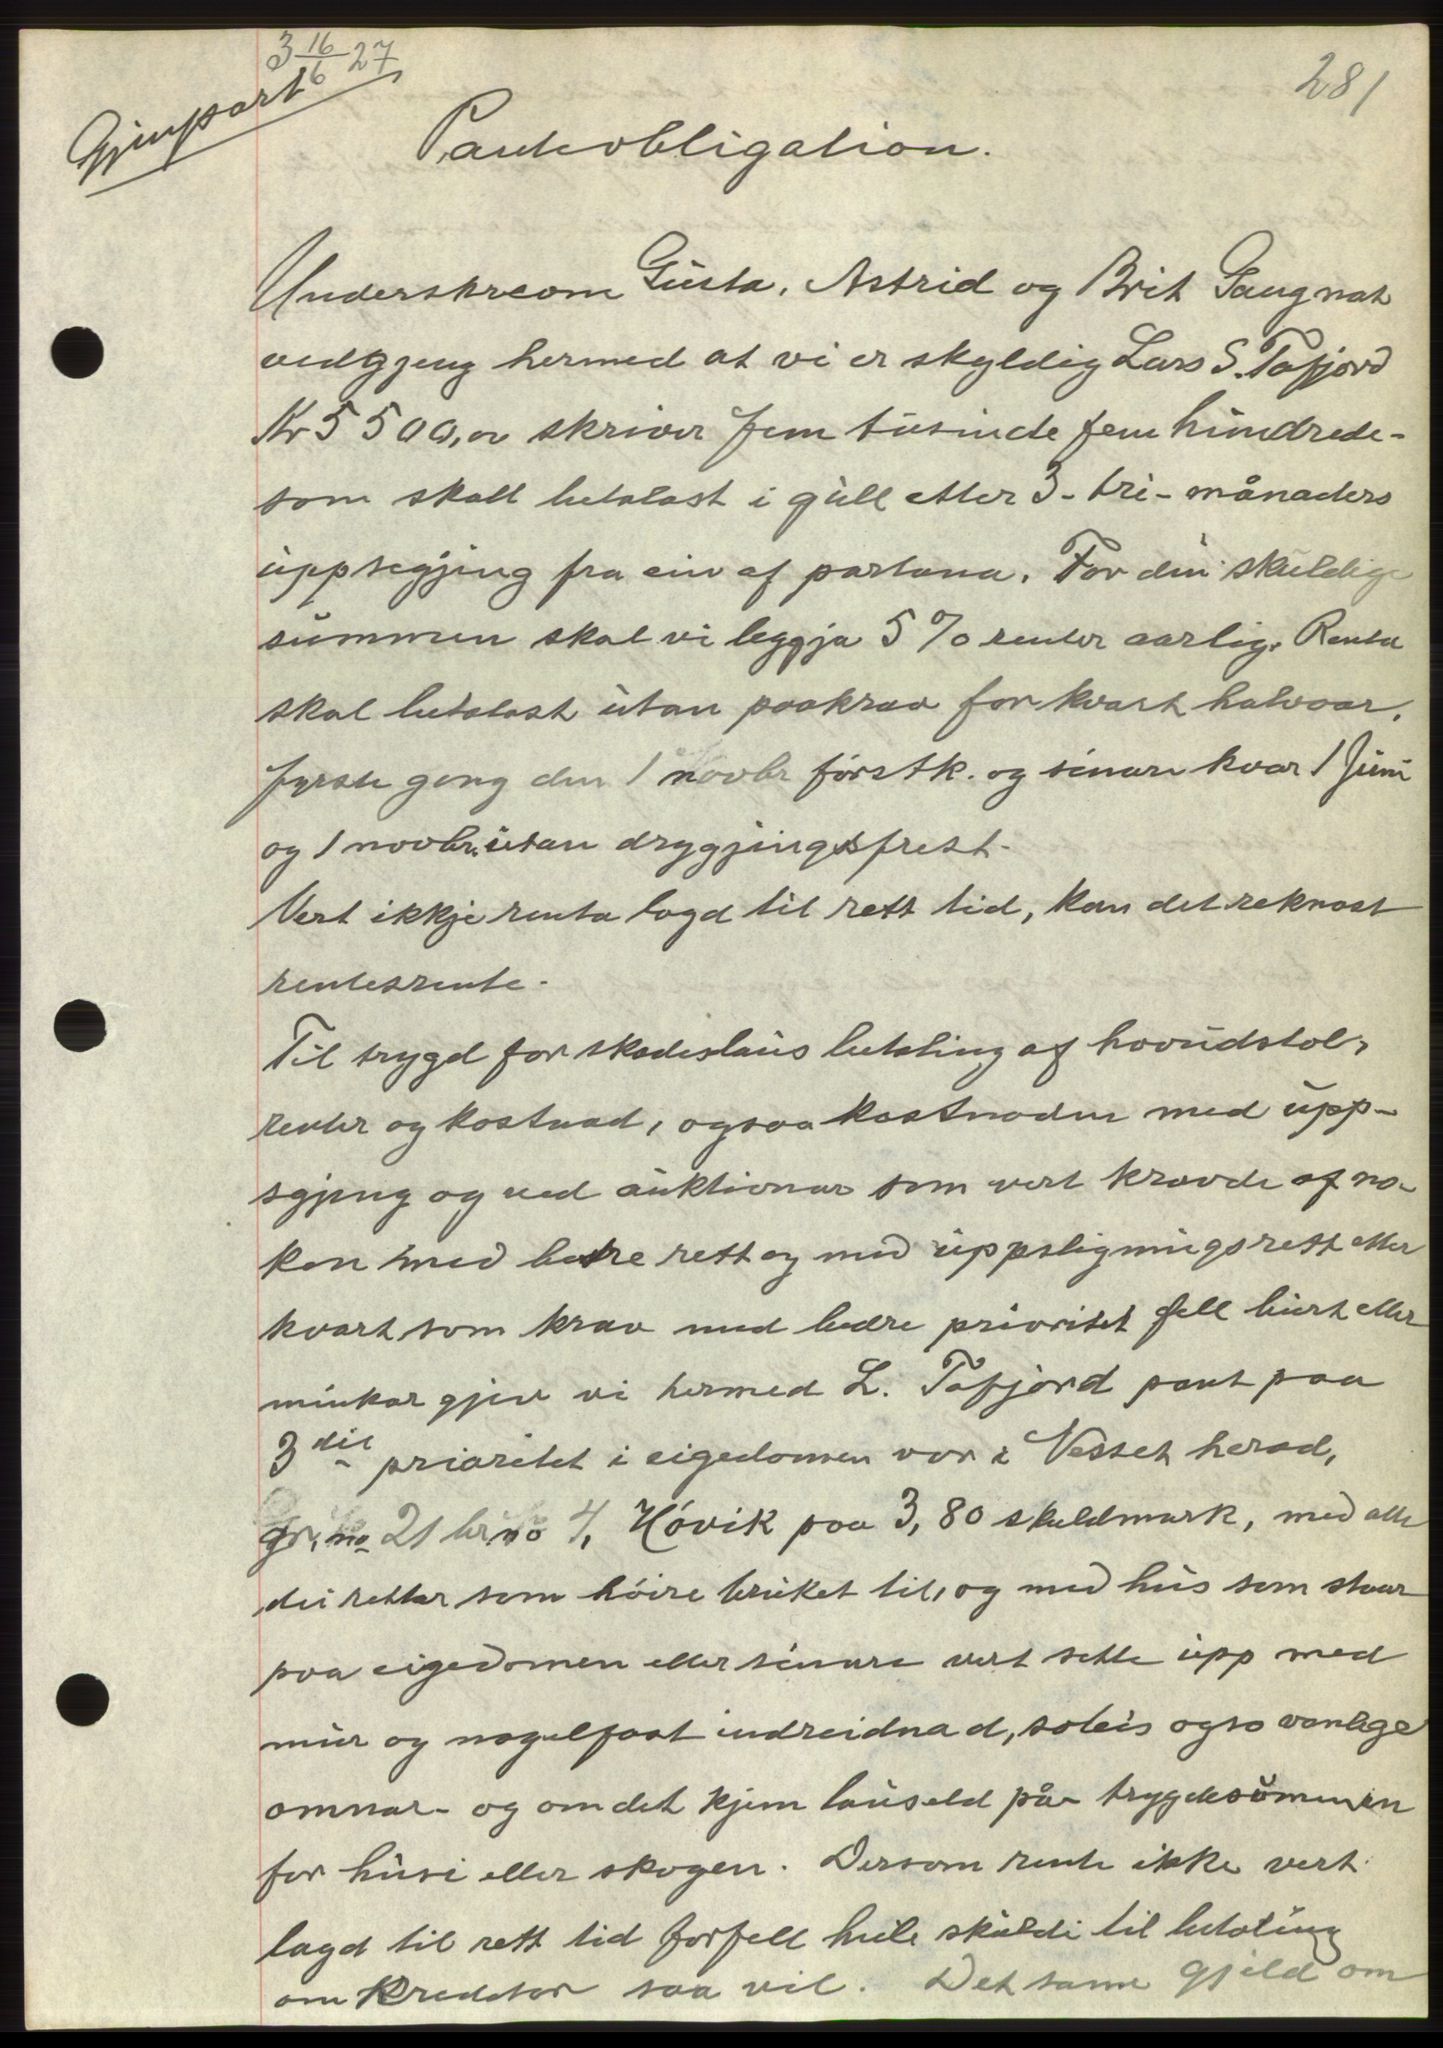 3 16/6 27
281
Gjenpart
Panteobligation.
Underskreone Gusta, Astrid og Brit Gaugnat
vedgjeng hermed at vi er skyldig Lars S. Tafjord
Kr 5500,00 skriver fem tusinde fem hundrede-
som skall betalast i gull etter 3- tri- månaders
uppsegjing fra ein af partana. For din skuldige
summen skal vi leggja 5 % renter aarlig. Renta
skal betalast utan paakrav for kvart halvaar,
fyrste gong den 1 novbr förstk. og sinare kvar 1 Juni
og 1 novbr. utan drygjingsfrest-
Vert ikkje renta lagd til rett tid, kan det reknast
rentesrente-
Til trygd for skadeslaus betaling af hovudstol,
renter og kostnad, ogsaa kostnaden med upp-
sgjeng og ved auktionar som vert kravde af no-
ken med betre rett og med uppsligningsrett etter
kvart som krav med bedre prioritet fell burt eller
minkar gjev vi hermed L. Tafjord pant paa
3die prioritet i eigedomen vor i Nesset herad,
gr. no 21 br no 4, Hóvik paa 3,80 skuldmark, med alle
dei retter som höire bruket til, og med hus som staar
paa eigedomen eller sinare vert sette upp med
mur og nagelfast indreidnad, soleis ogso vanlege
omnar- og om det kjem lauseld på- trygdesummen
for husi eller skogen. Dersom rente ikke vert
lagd til rett tid forfell heile skuldi til betaling
om kreditor saa vil. Det same gjeld om